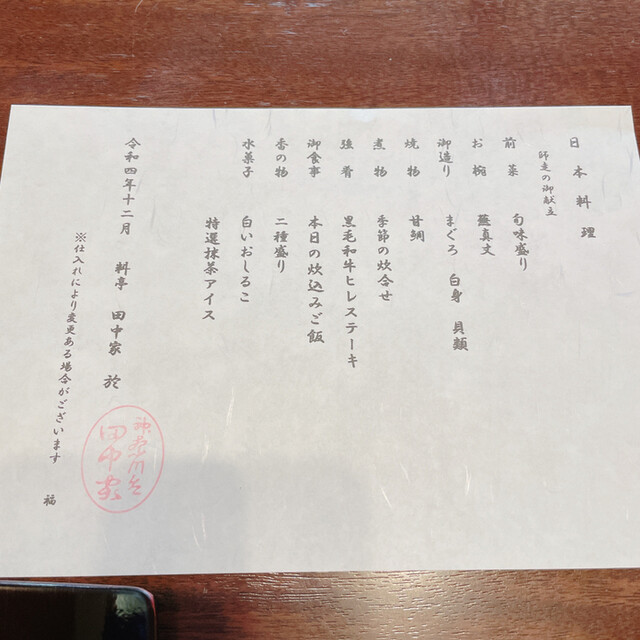 日本料理
師走の御献立
前菜 旬味盛り
お椀 蕪真丈
御造り まぐろ 白身 貝類
焼物 甘鯛
煮物 季節の炊合せ
強肴 黒毛和牛ヒレステーキ
御食事 本日の炊込みご飯
香の物 二種盛り
水菓子 白いおしるこ
特選抹茶アイス
令和四年十二月 料亭 田中家 於
※仕入れにより変更ある場合がございます 福
神奈川台
田中家